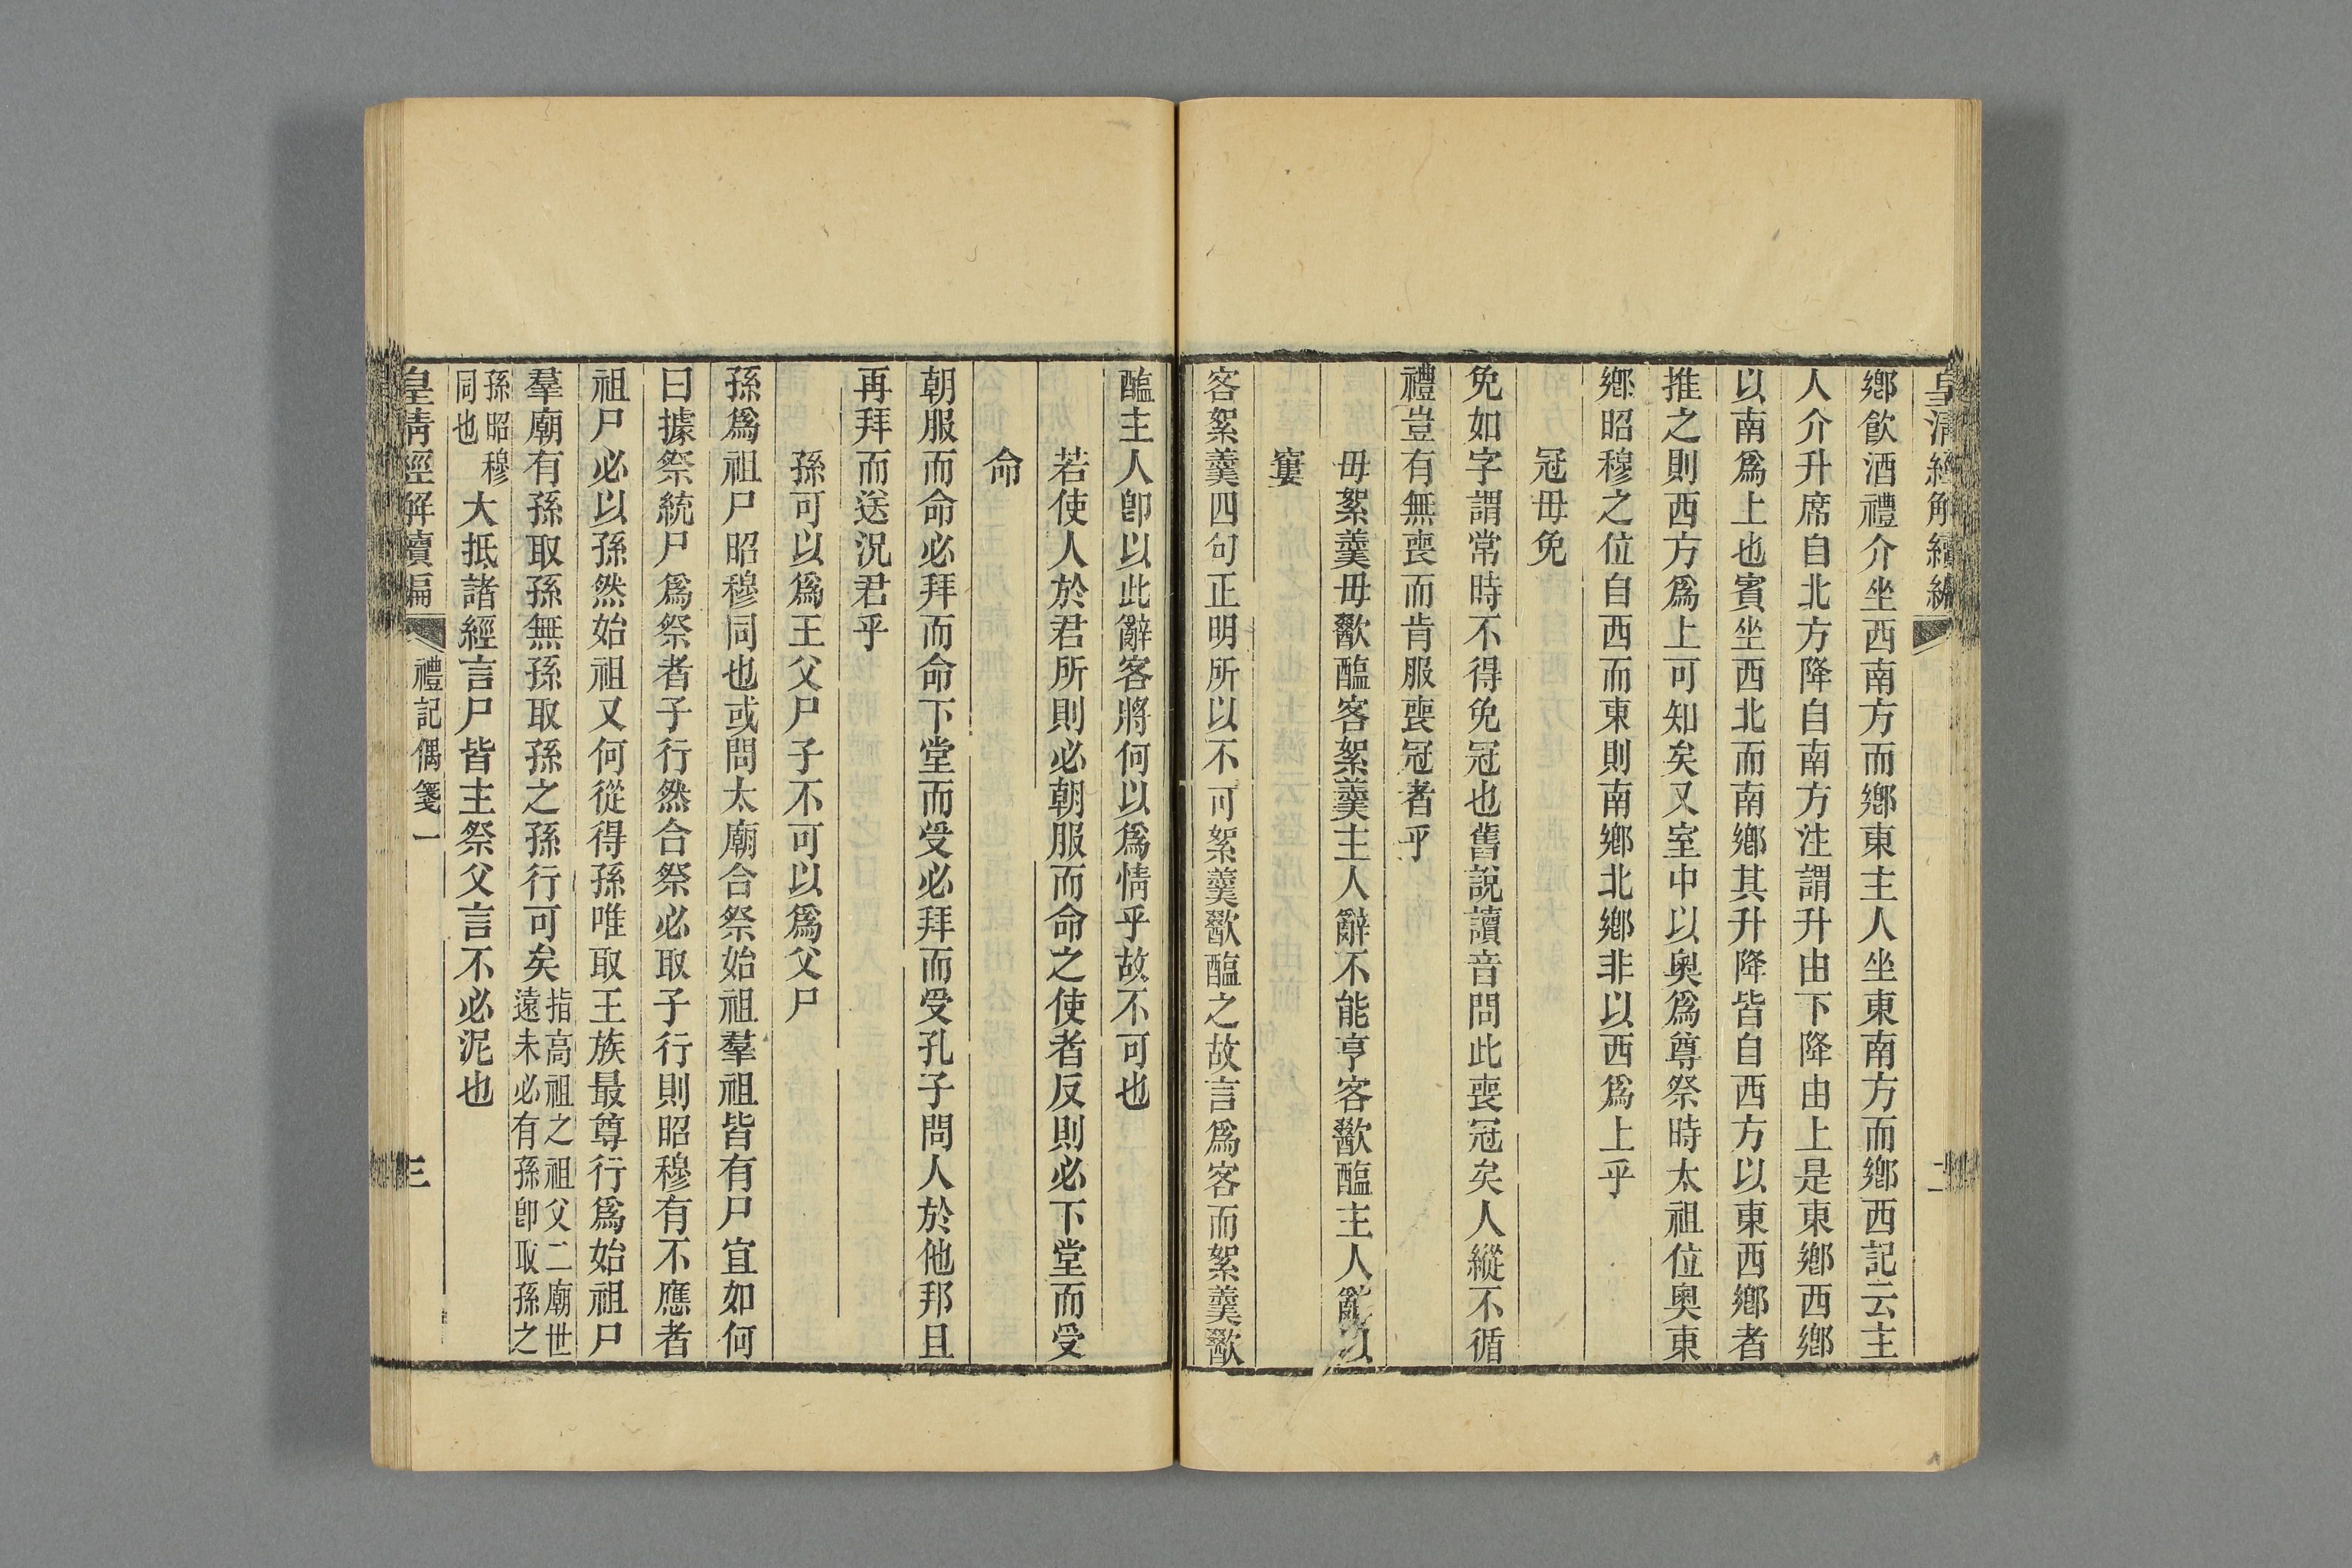 皇清經解續編
二
鄉飮酒禮介坐西南方而鄉東主人坐東南方而鄉西記云主
人介升席自北方降自南方注謂升由下降由上是東鄉西鄉
以南爲上也賓坐西北而南鄉其升降皆自西方以東西鄉者
推之則西方爲上可知矣又室中以奧爲尊祭時太祖位奧東
鄉昭穆之位自西而東則南鄉北鄉非以西爲上乎
冠毋免
免如字謂常時不得免冠也舊說讀音問此喪冠矣人縱不循
禮豈有無喪而肯服喪冠者乎
毋絮羹毋歠醢客絮羹主人辭不能亨客歠醢主人辭以
窶
客絮羹四句正明所以不可絮羹歠醢之故言爲客而絮羹歠
醢主人卽以此辭客將何以爲情乎故不可也
若使人於君所則必朝服而命之使者反則必下堂而受
命
朝服而命必拜而命下堂而受必拜而受孔子問人於他邦且
再拜而送況君乎
孫可以爲王父尸子不可以爲父尸
孫爲祖尸昭穆同也或問太廟合祭始祖羣祖皆有尸宜如何
曰據祭統尸爲祭者子行然合祭必取子行則昭穆有不應者
祖尸必以孫然始祖又何從得孫唯取王族最尊行爲始祖尸
羣廟有孫取孫無孫取孫之孫行可矣指高祖之祖父二廟世
遠未必有孫卽取孫之
孫昭穆
同也大抵諸經言尸皆主祭父言不必泥也
皇清經解續編
禮記偶箋一
三